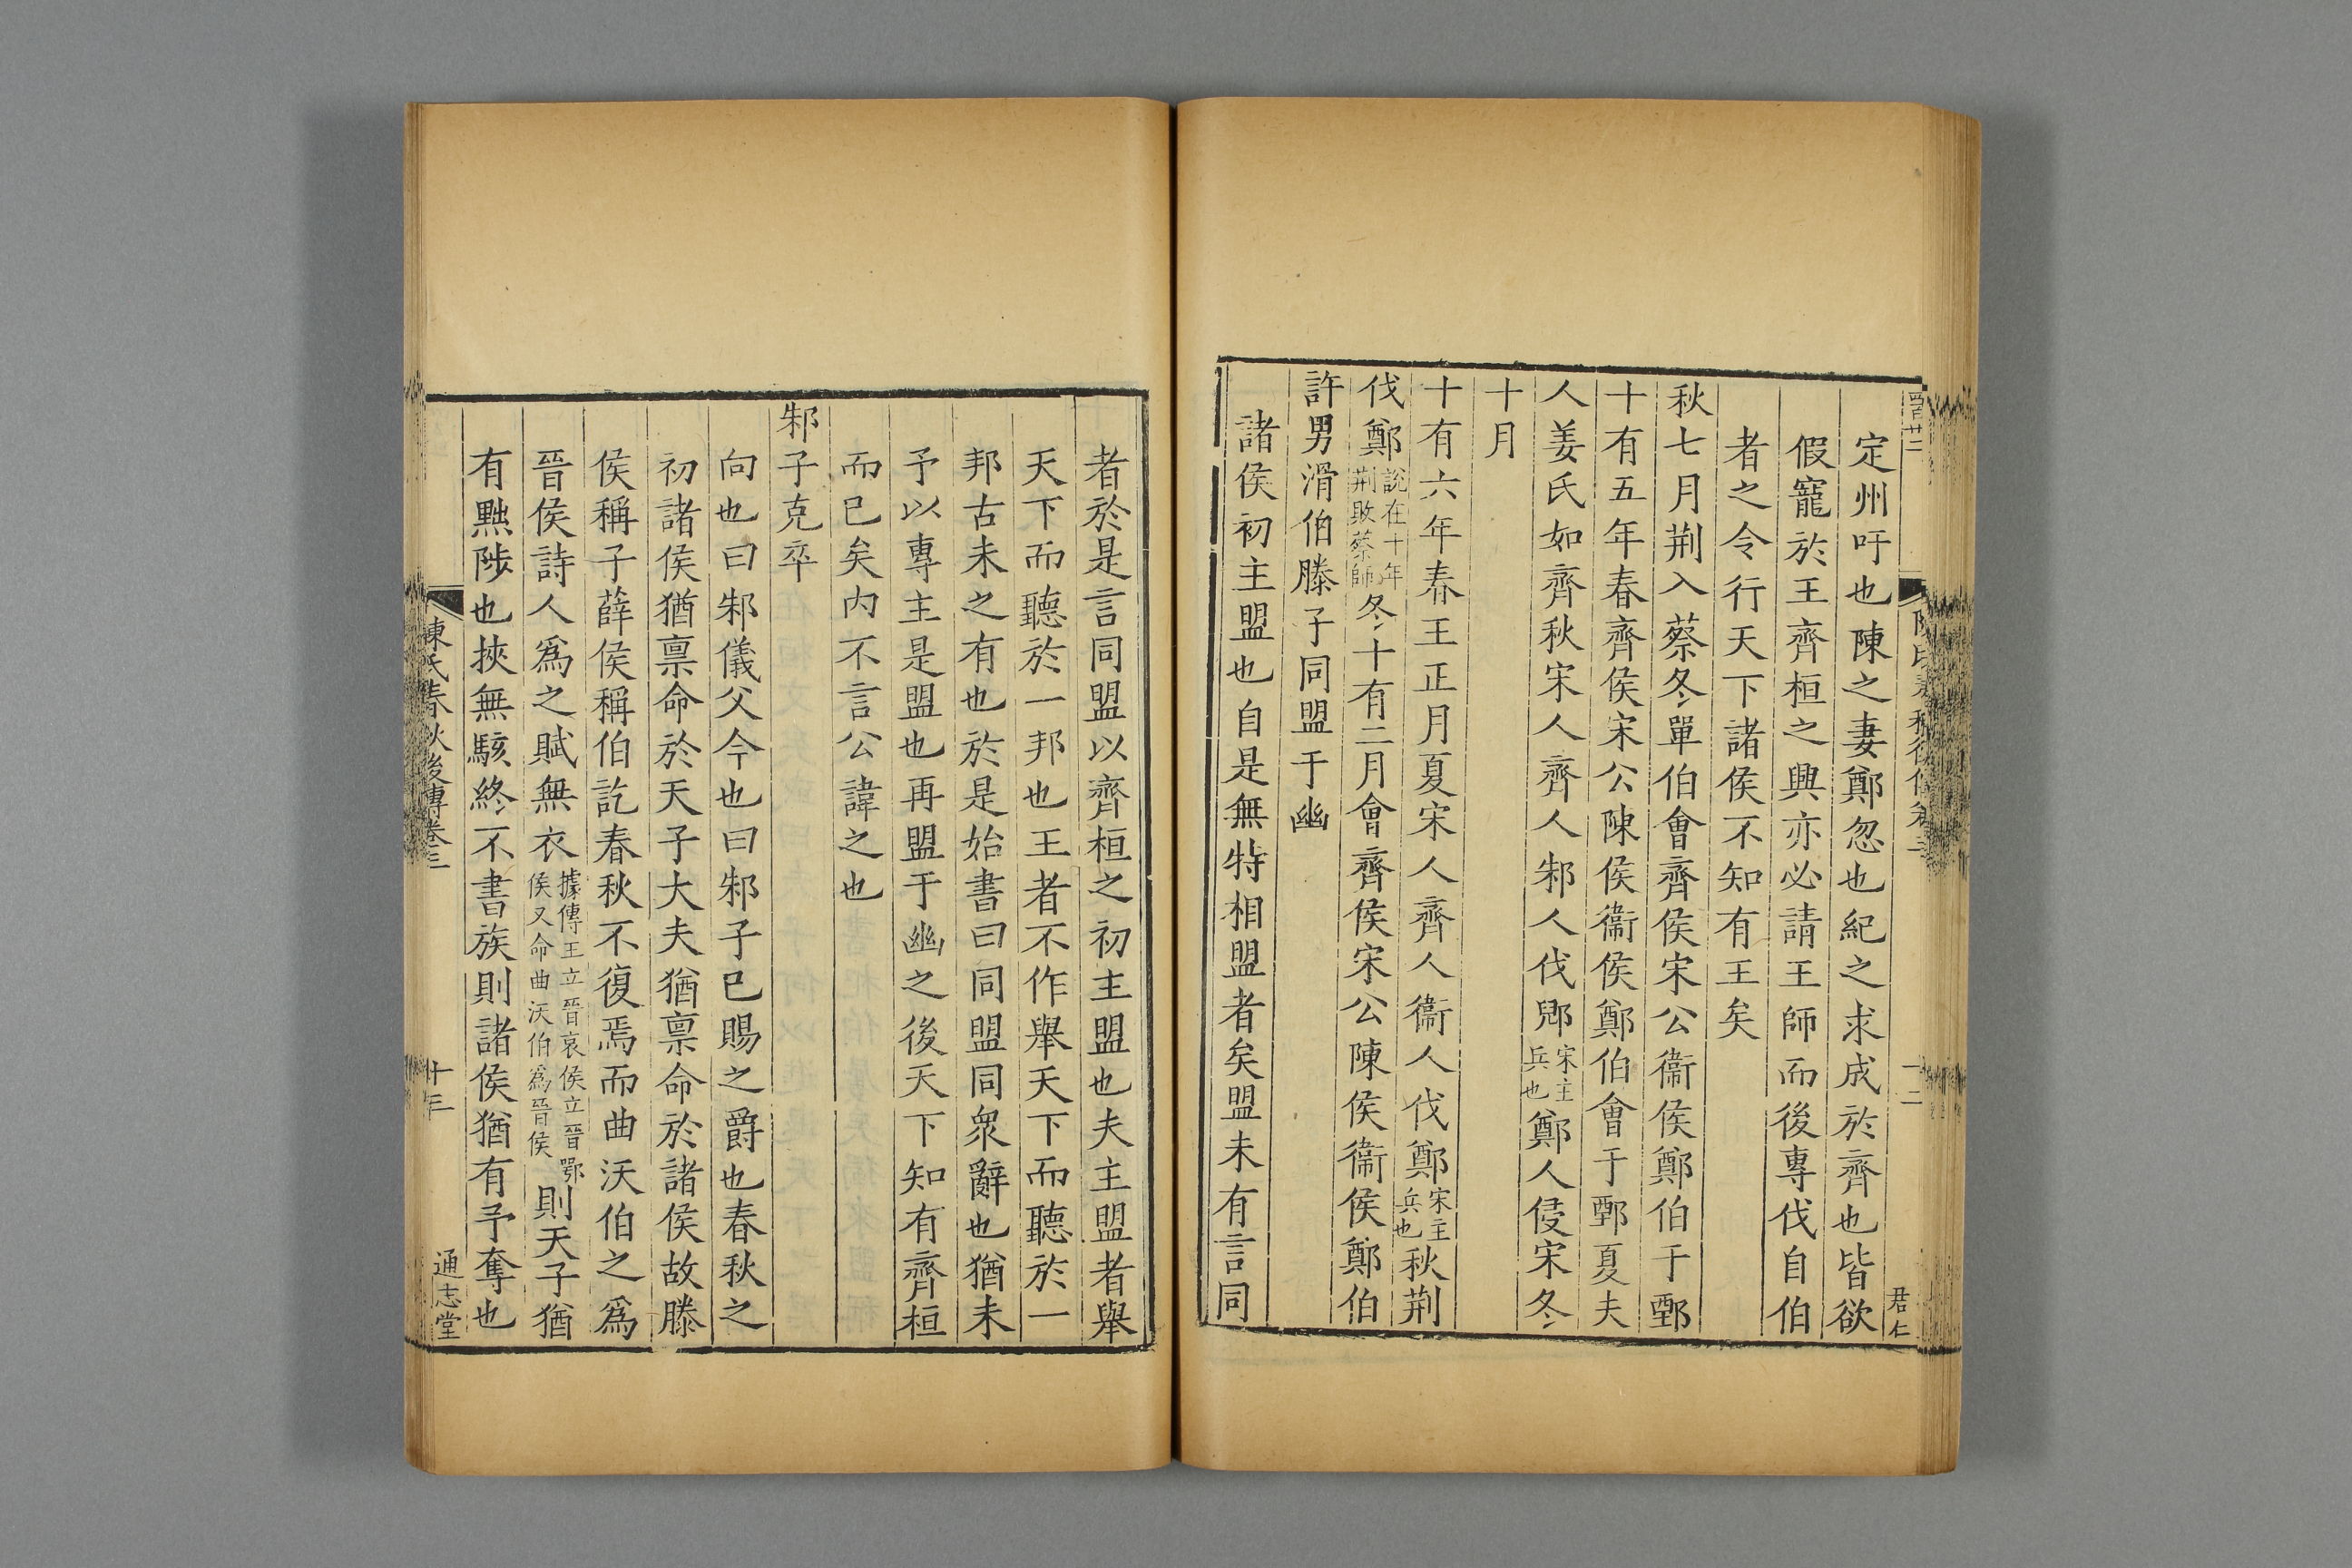 定州吁也陳之妻鄭忽也紀之求成於齊也皆欲
假寵於王齊桓之興亦必請王師而後專伐自伯
者之令行天下諸侯不知有王矣
秋七月荆入蔡冬單伯會齊侯宋公衞侯鄭伯于鄄
十有五年春齊侯宋公陳侯衞侯鄭伯會于鄄夏夫
人姜氏如齊秋宋人齊人邾人伐郳宋主兵也鄭人侵宋冬
十月
十有六年春王正月夏宋人齊人衞人伐鄭宋主兵也秋荆
伐鄭說在十年荆敗蔡師冬十有二月會齊侯宋公陳侯衞侯鄭伯
許男滑伯滕子同盟于幽
諸侯初主盟也自是無特相盟者矣盟未有言同
君仁
者於是言同盟以齊桓之初主盟也夫主盟者舉
天下而聽於一邦也王者不作舉天下而聽於一
邦古未之有也於是始書曰同盟同衆辭也猶未
予以專主是盟也再盟于幽之後天下知有齊桓
而已矣内不言公諱之也
邾子克卒
向也曰邾儀父今也曰邾子已賜之爵也春秋之
初諸侯猶禀命於天子大夫猶禀命於諸侯故滕
侯稱子薛侯稱伯訖春秋不復焉而曲沃伯之爲
晉侯詩人爲之賦無衣據傳王立晉哀侯立晉鄂侯又命曲沃伯爲晉侯則天子猶
有黜陟也挾無駭終不書族則諸侯猶有予奪也
陳氏春秋後傳卷三
十三
通志堂